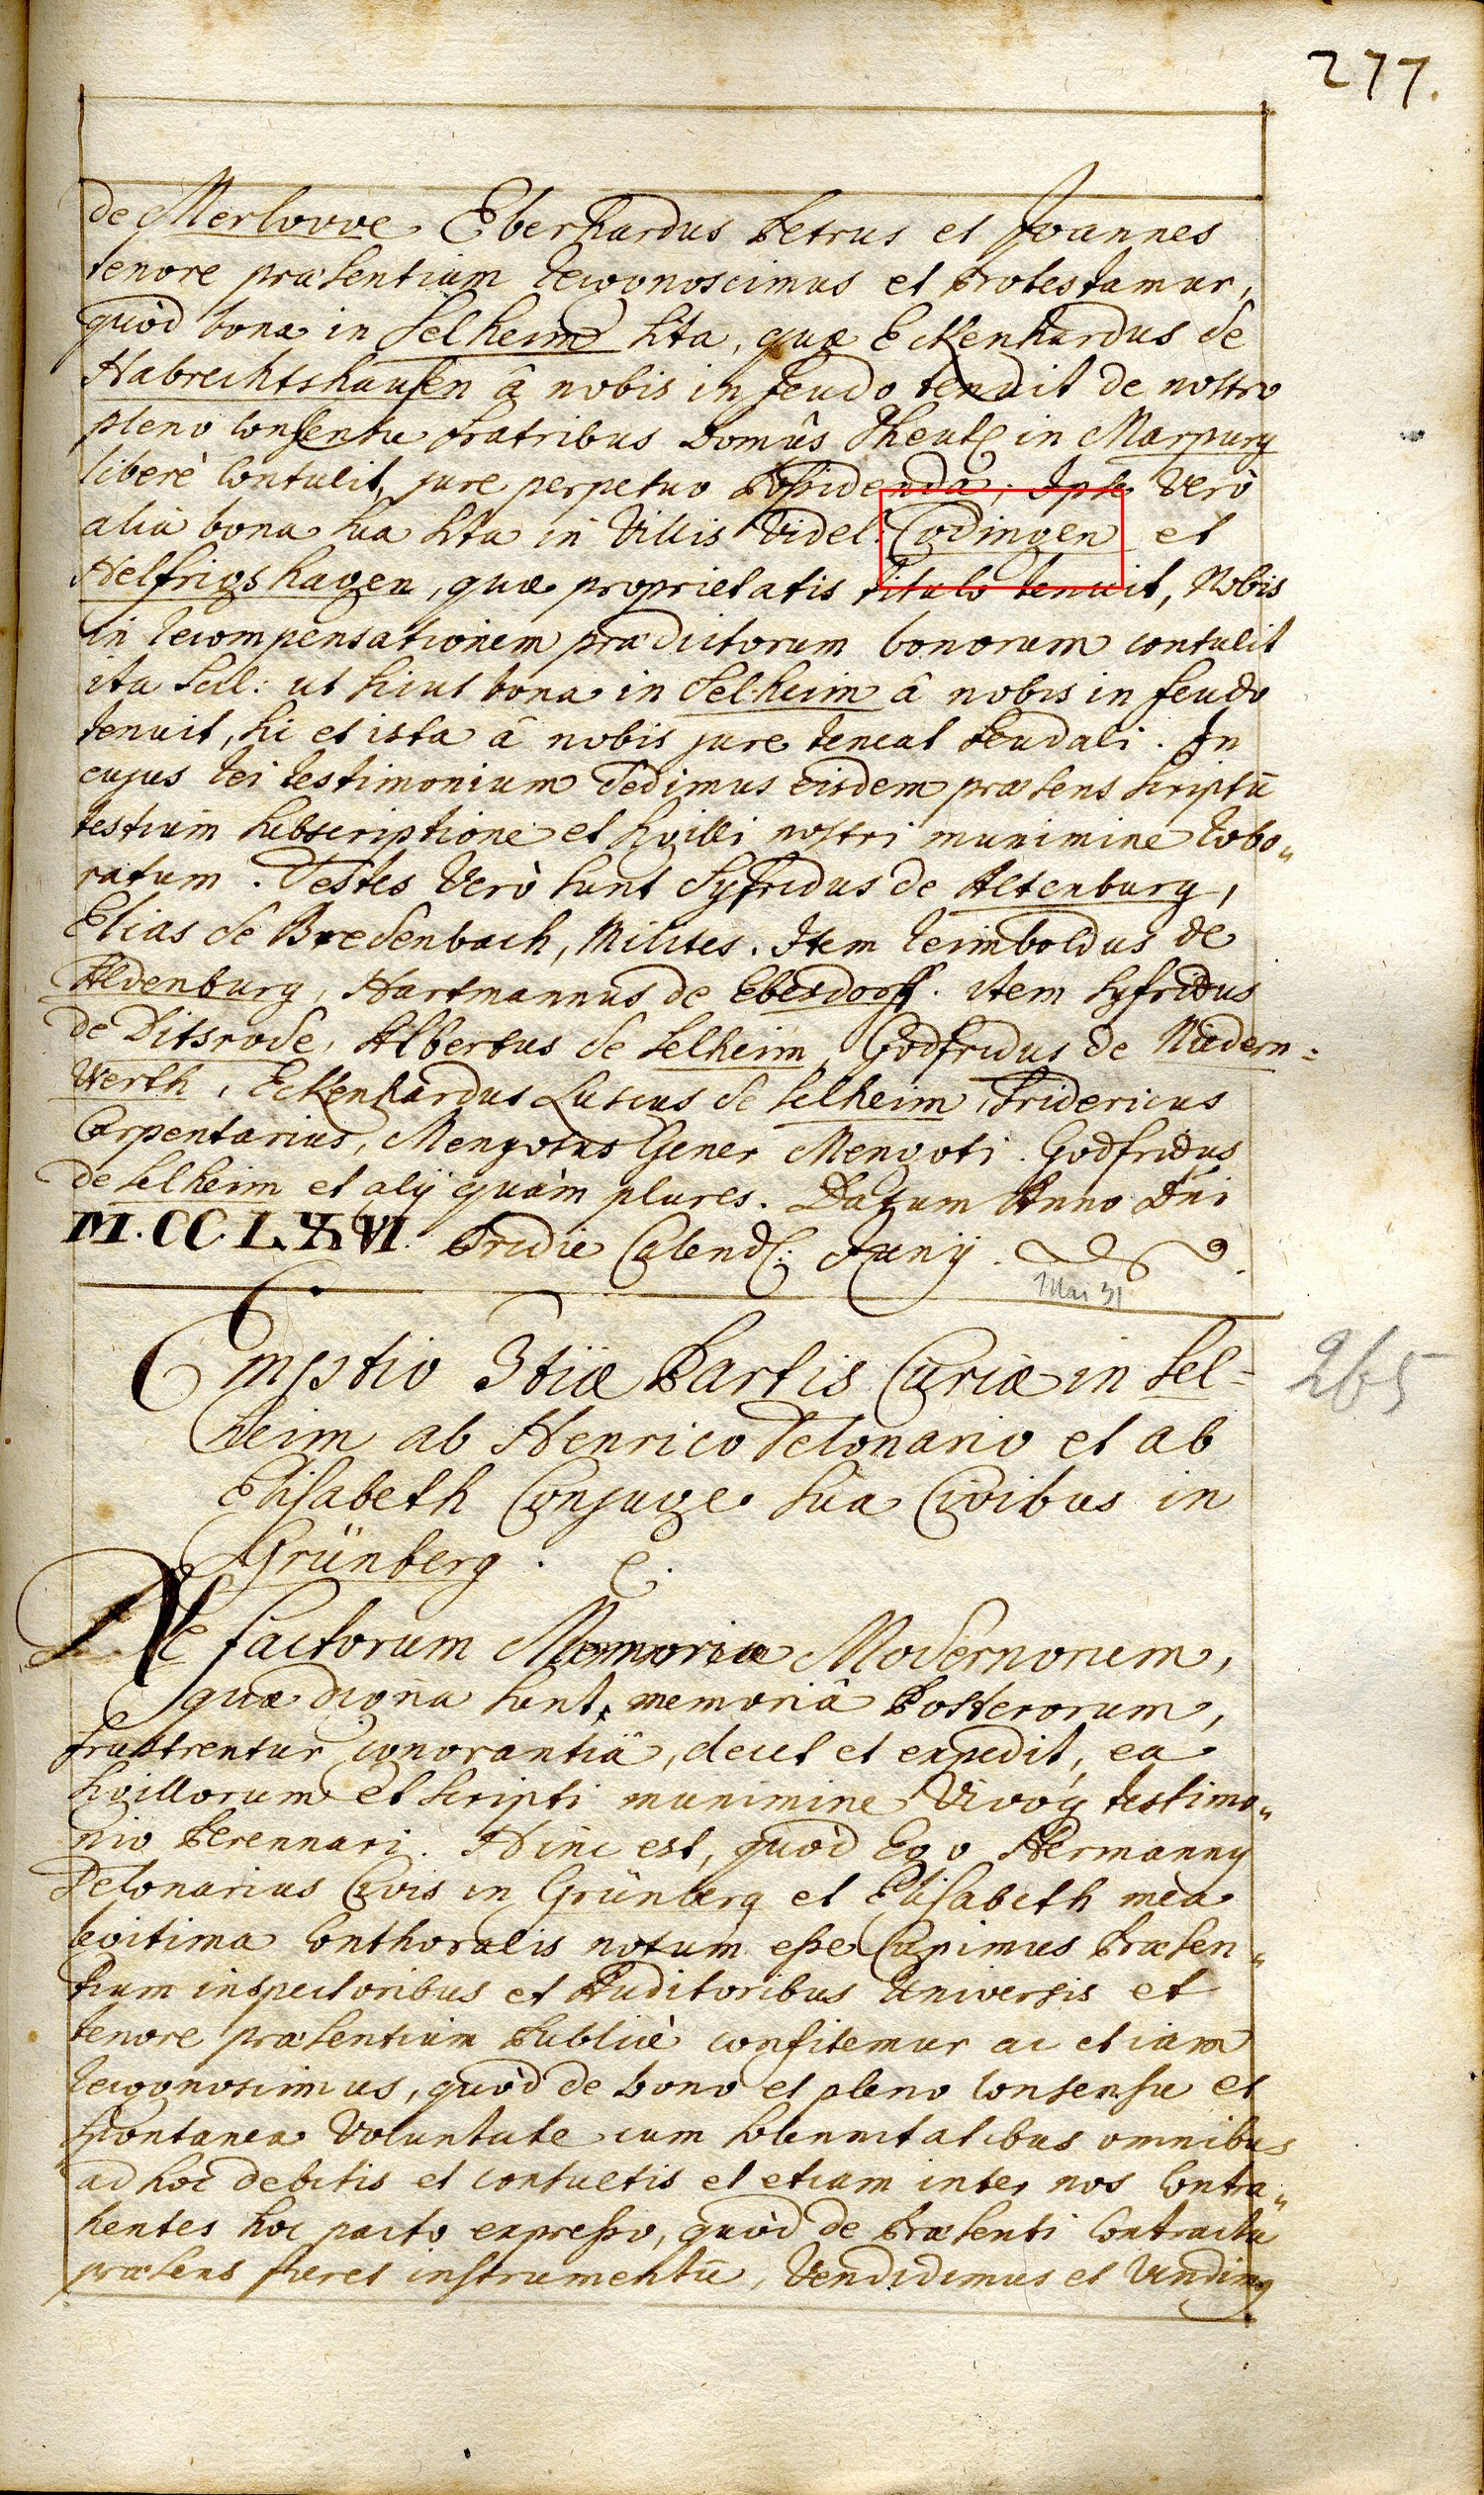 277.
de Merlovve. Eberhardus Petrus et Joannes
tenore præsentium recognoscimus et Protestamur,
quòd bona in Selheim sita, quæ Eckenhardus de
Habrechtshausen â nobis in feudo tenuit de nostro
pleno consensu fratribus Domûs Theut: in Marpurg
liberè contulit, jure perpetuo Possidenda; Ipse verò
alia bona sua sita in Villis Videl. Codingen et
Helfrigshagen, quæ proprietatis titulo tenuit, Nobis
in recompensationem prædictorum bonorum contulit
ita scil: ut sicut bona in Selheim â nobis in feudo
tenuit, sic et ista â nobis jure teneat feudali. In
cujus rei testimonium dedimus eisdem præsens scriptū
testium subscriptione et sigilli nostri munimine robo„
ratum. Testes verò sunt Syfridus de Altenburg,
Elias de Bredenbach, Milites. Item Reimboldus de
Aldenburg, Hartmannus de Ebersdorff. item Syfridus
de Ditsrode, Albertus de Selheim, Godfridus de Niedern=
Werth, Eckenhardus Luscus de Selheim, Fridericus
Carpentarius, Mengotus Gener Mengoti. Godfridus
de Selheim et alij quàm plures. Datum Anno Dñi
M.CC.LXVI. Pridie Calend: Junij.
Mai 31
Emptio 3tiæ Partis Curiæ in Sel=
heim ab Henrico Telonario et ab
Elisabeth Conjuge sua Civibus in
Grünberg.
265
Ne factorum Memoria Modernorum,
quæ digna sunt memoriâ Posterorum,
frustrentur ignorantiâ, decet et expedit, ea
sigillorum et scripti munimine Vivoq testimo„
nio Perennari. Hinc est, quòd Ego Hermanny
Telonarius Civis in Grünberg et Elisabeth mea
legitima Conthoralis notum esse Cupimus Præsen„
tium inspectoribus et Auditoribus Universis et
tenore præsentium Publicè confitemur ac etiam
recognoscimus, quòd de bono et pleno consensu et
spontanea Voluntate cum solennitatibus omnibus
ad hoc debitis et consuetis et etiam inter nos Contra„
hentes hoc pacto expresso, quòd de Præsenti Contractu
præsens fieret instrumentū, Vendidimus et Vendimq